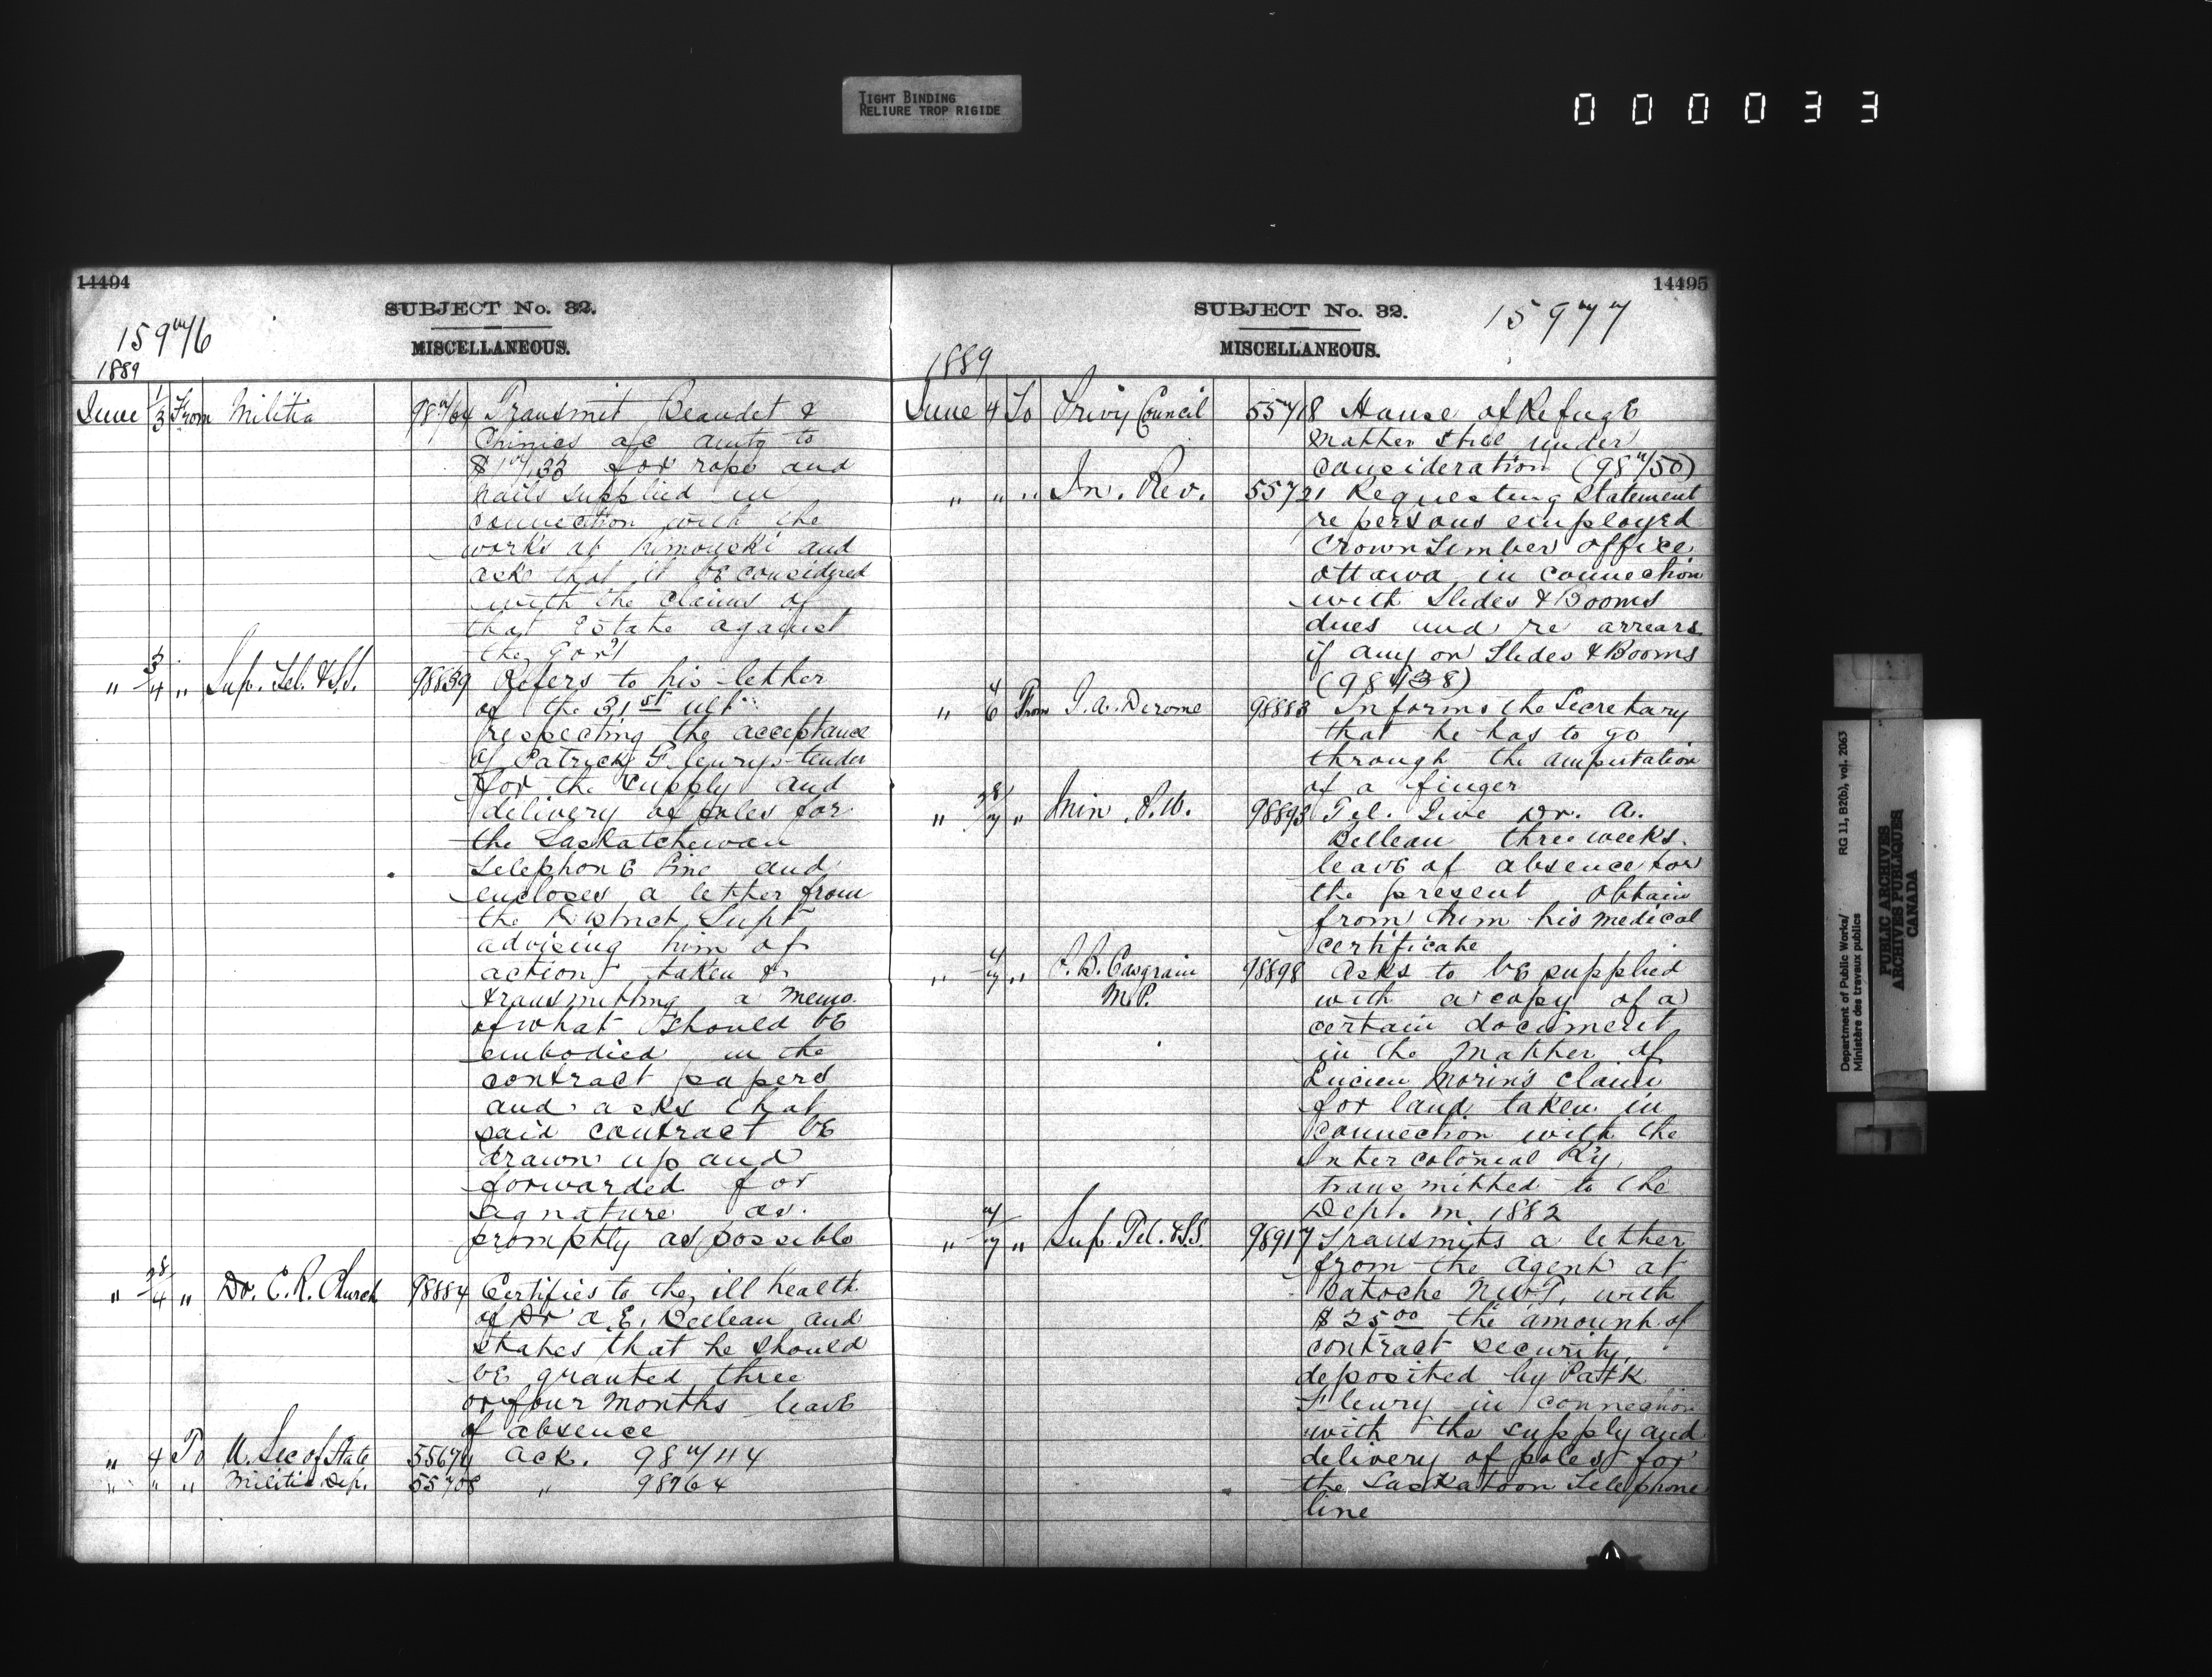 TIGHT BINDING
RELIURE TROP RIGIDE
000033
14494
SUBJECT No. 32.
15976
MISCELLANEOUS.
1889
June 1/3 From Militia 98764 Transmit Beaudet &
Chinics a/c amtg to
for rope and
nails supplied in
connection with the
works at Rimouski and
ask that it be considered
with the claims of
that Estate against
the Gov't
" 3/4 " Sup. Tel. & S.S. 98839 Refers to his letter
of the 31st ult
respecting the acceptance
of Patryck Fleurys tender
for the supply and
delivery of poles for
the Saskatchewan
Telephone line and
encloses a letter from
the District Supt
advising him of
action taken &
transmitting a memo.
of what should be
embodied in the
contract papers
and asks that
said contract be
drawn up and
forwarded for
signature as
promptly as possible
" 28/4 " Dr. C. R. Church 98884 Certifies to the ill health
of Dr A. E. Belleau and
states that he should
be granted three
or four months leave
of absence
" 4 To U. Sec of State 55674 Ack. 98744
" " " Militia Dep. 55708 " 98764
14495
SUBJECT No. 32.
15977
MISCELLANEOUS.
1889
June 4 To Privy Council 55718 House of Refuge
matter still under
consideration (98750)
" " " In. Rev. 55721 Requesting Statement
re persons employed
Crown Timber office
Ottawa in connection
with Slides & Booms
dues and re arrears
if any on Slides & Booms
(98738)
" 4/6 From J. A. Derome 98883 Informs the Secretary
that he has to go
through the amputation
of a finger
" 28/7 " Min. P. W. 98893 Tel. Give Dr. A.
Belleau three weeks
leave of absence for
the present obtain
from him his medical
certificate
" 4/7 " P. B. Casgrain 98898 Asks to be supplied
M.P. with a copy of a
certain document
in the matter of
Lucien Morin's claim
for land taken in
connection with the
Intercolonial Ry,
transmitted to the
Dept. in 1882
" 7/7 " Sup. Tel. & S.S. 98917 Transmits a letter
from the Agent at
Batoche N.W.T. with
$25.00 the amount of
contract security
deposited by Patk
Fleury in connection
with the supply and
delivery of poles for
the Saskatoon Telephone
line
Department of Public Works/
Ministère des travaux publics
RG 11, B2(b), vol. 2063
PUBLIC ARCHIVES
ARCHIVES PUBLIQUES
CANADA